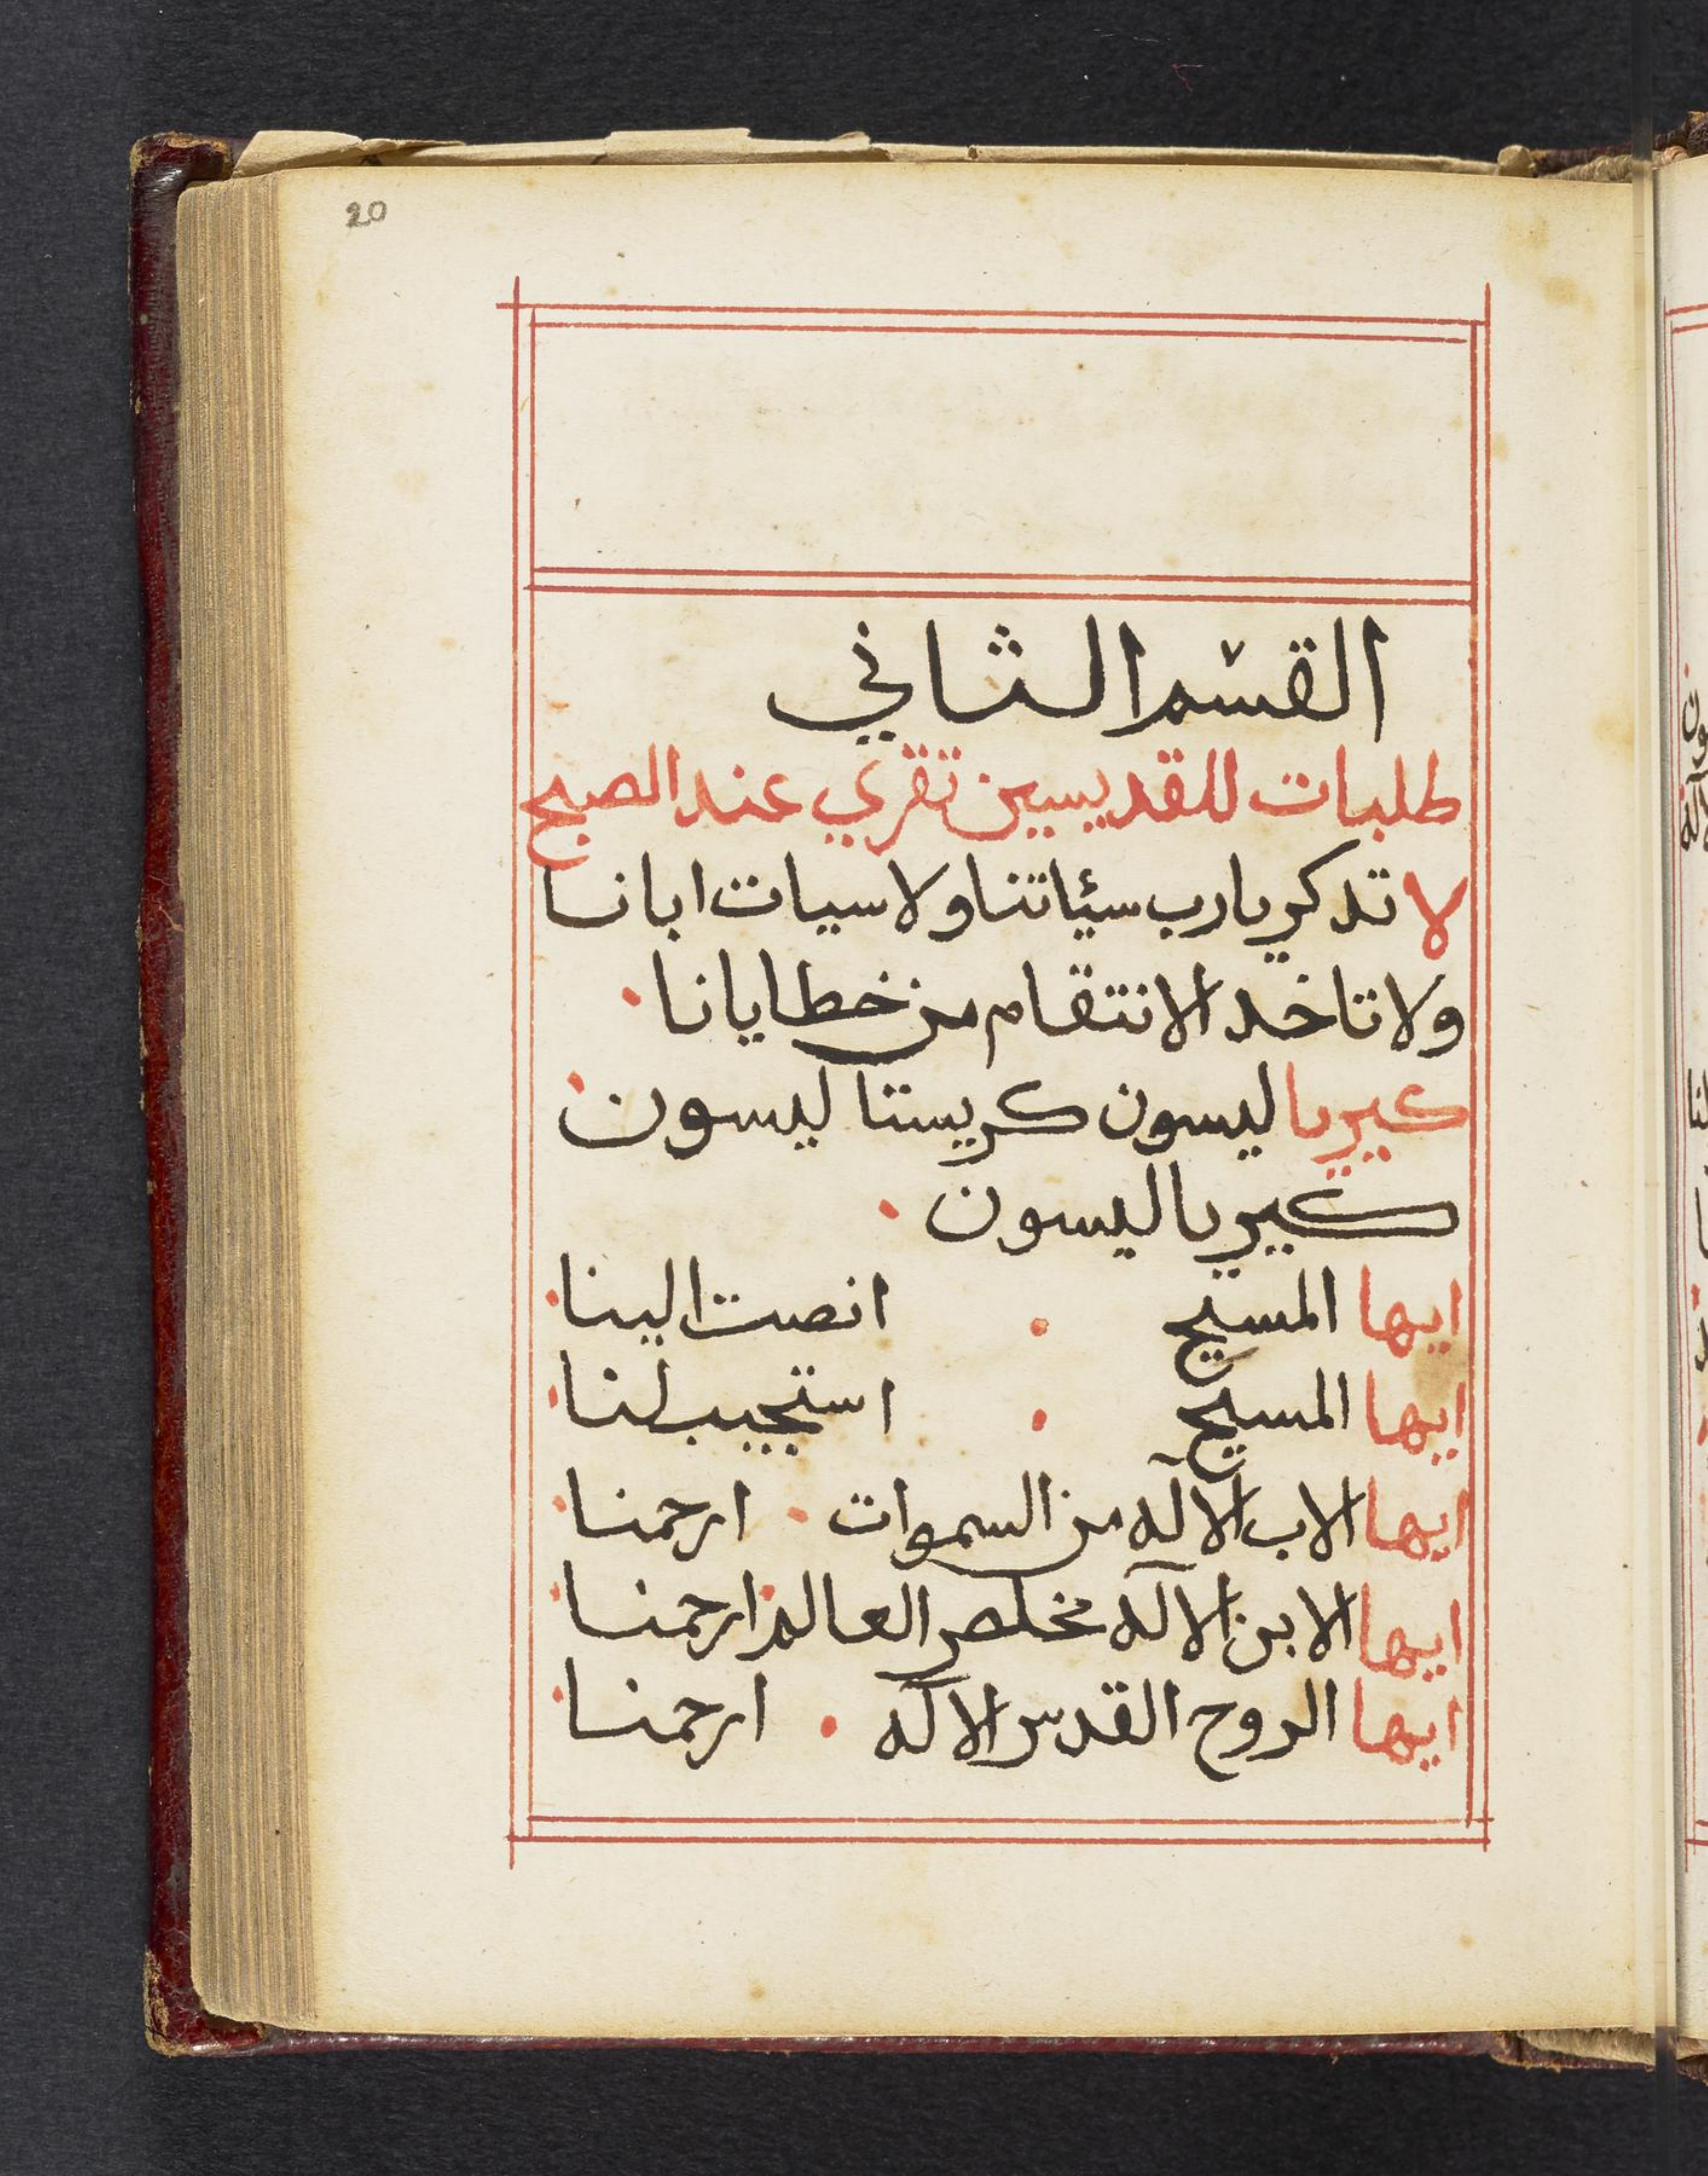 20
القسم الثاني
طلبات للقديسين تقري عند الصبح
لا تدكر يارب سئاتنا ولا سيات ابانا
ولا تاخد الانتقام من خطايانا ·
كيريا ليسون كريستا ليسون ·
كيريا ليسون ·
ايها المسيح · انصت الينا ·
ايها المسيح · استجيب لنا ·
ايها الاب الاله من السموات · ارحمنا ·
ايها الابن الاله مخلص العالم · ارحمنا ·
ايها الروح القدس الاله · ارحمنا ·